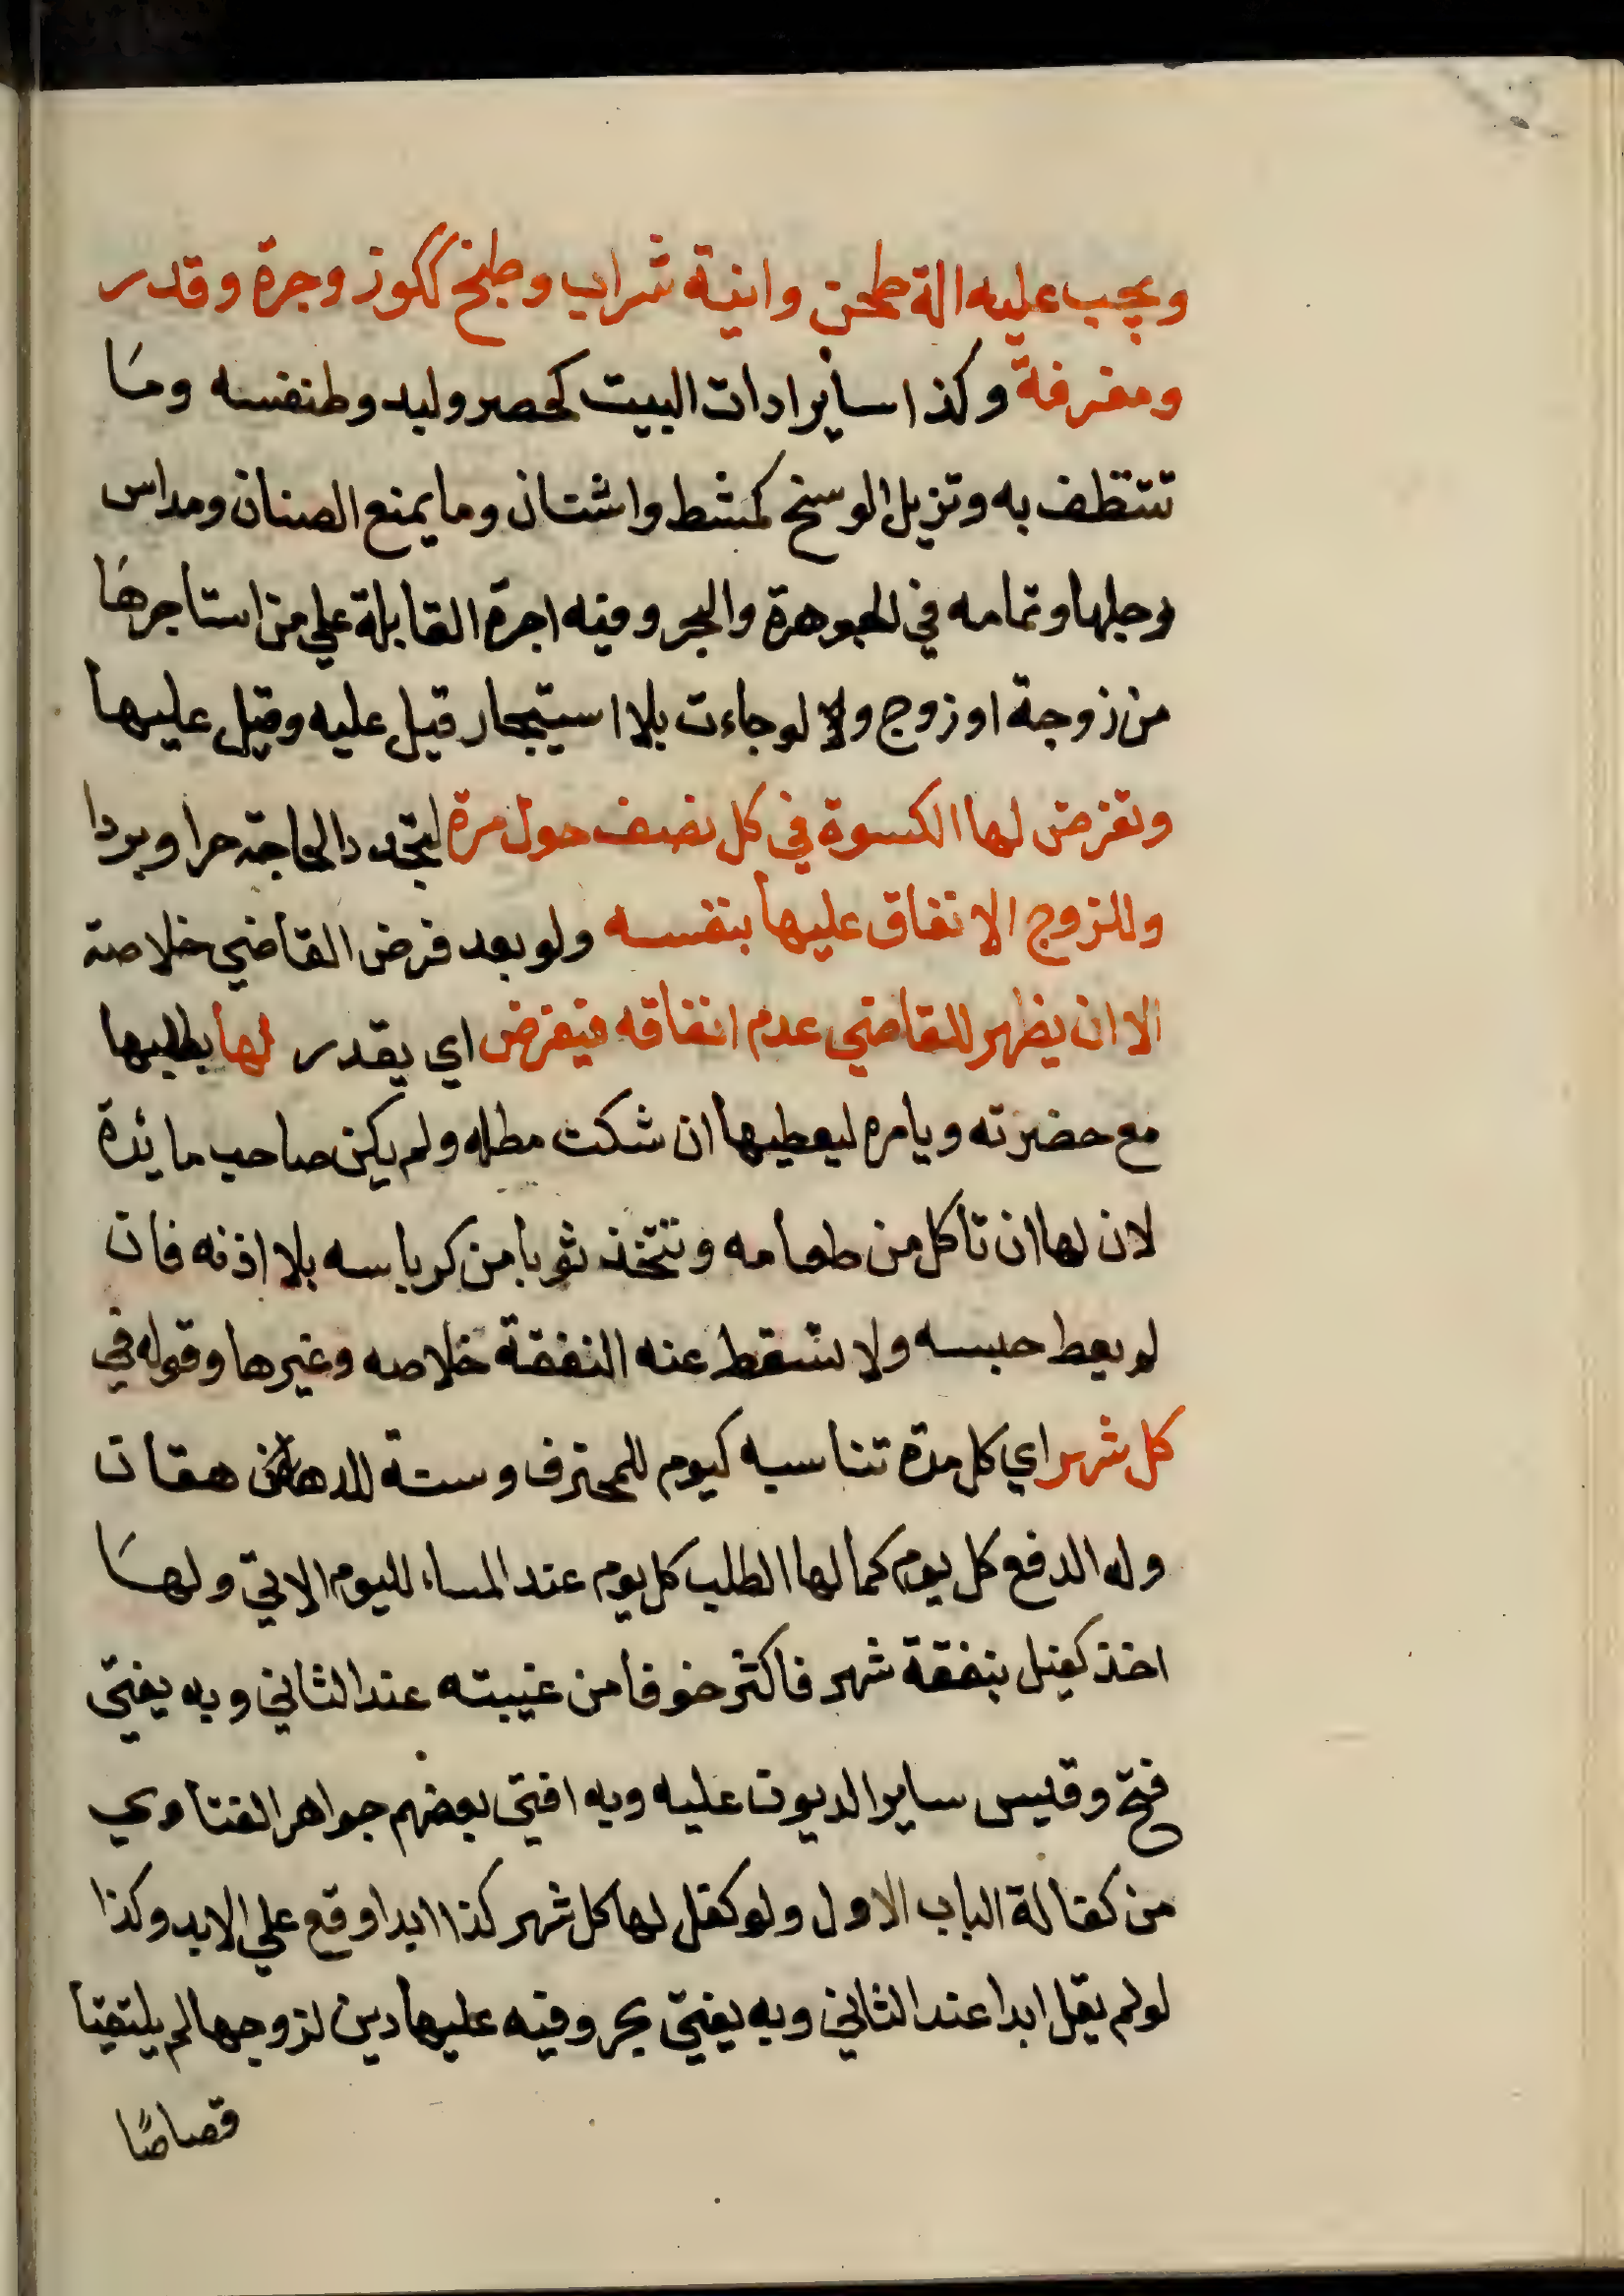 ويجب عليه الة طحن وانية شراب وطبخ ككوز وجرة وقدر
ومغرفة وكذا ساير ادات البيت كحصر ولبد وطنفسه وما
تتنظف به وتزيل الوسخ كمشط واشنان وما يمنع الصنان ومداس
رجلها وتمامه في الجوهرة والبحر وفيه اجرة القابلة علي من استاجرها
من زوجة او زوج ولا لو جاءت بلا استيجار قيل عليه وقيل عليها
وتفرض لها الكسوة في كل نصف حول مرة لتجدد الحاجة حرا وبردا
وللزوج الانفاق عليها بنفسه ولو بعد فرض القاضي خلاصة
الا ان يظهر للقاضي عدم انفاقه فيفرض اي يقدر لها بطلبها
مع حضرته ويامره ليعطيها ان شكت مطله ولم يكن صاحب مائدة
لان لها ان تاكل من طعامه وتتخذ ثوبا من كرباسه بلا اذنه فان
لم يعط حبسه ولا تسقط عنه النفقة خلاصه وغيرها وقوله في
كل شهر اي كل مدة تناسبه كيوم للمحترف وسنة للدهاقن هقان
وله الدفع كل يوم كما لها الطلب كل يوم عند المساء لليوم الاتي ولها
اخذ كفيل بنفقة شهر فاكثر خوفا من غيبته عند الثاني وبه يفتى
فتح وقيس ساير الديون عليه وبه افتى بعضهم جواهر الفتاوي
من كفالة الباب الاول ولو كفل لها كل شهر كذا ابدا وقع علي الابد وكذا
لو لم يقل ابدا عند الثاني وبه يفتى بحر وفيه عليها دين لزوجها لم يلتقيا
قصاصًا